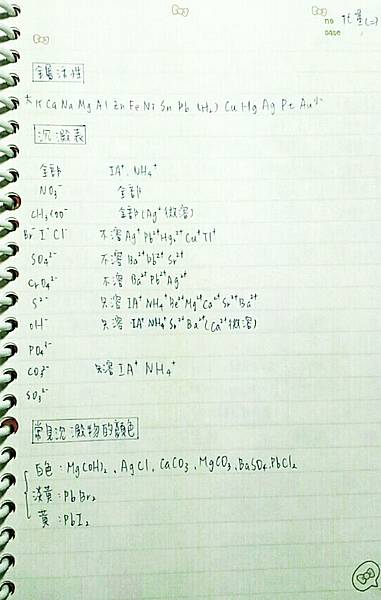 no 化學(二)
DATE
金屬活性
大 K Ca Na Mg Al Zn Fe Ni Sn Pb (H₂) Cu Hg Ag Pt Au 小
沉澱表
全部 IA⁺, NH₄⁺
NO₃⁻ 全部
CH₃COO⁻ 全部(Ag⁺微溶)
Br⁻ I⁻ Cl⁻ 不溶 Ag⁺ Pb²⁺ Hg₂²⁺ Cu⁺ Tl⁺
SO₄²⁻ 不溶 Ba²⁺ Pb²⁺ Sr²⁺
CrO₄²⁻ 不溶 Ba²⁺ Pb²⁺ Ag⁺
S²⁻ 只溶 IA⁺ NH₄⁺ Be²⁺ Mg²⁺ Ca²⁺ Sr²⁺ Ba²⁺
OH⁻ 只溶 IA⁺ NH₄⁺ Sr²⁺ Ba²⁺ (Ca²⁺微溶)
PO₄³⁻
CO₃²⁻ 只溶 IA⁺ NH₄⁺
SO₃²⁻
常見沉澱物的顏色
白色:Mg(OH)₂、AgCl、CaCO₃、MgCO₃、BaSO₄、PbCl₂
淡黃:PbBr₂
黃:PbI₂